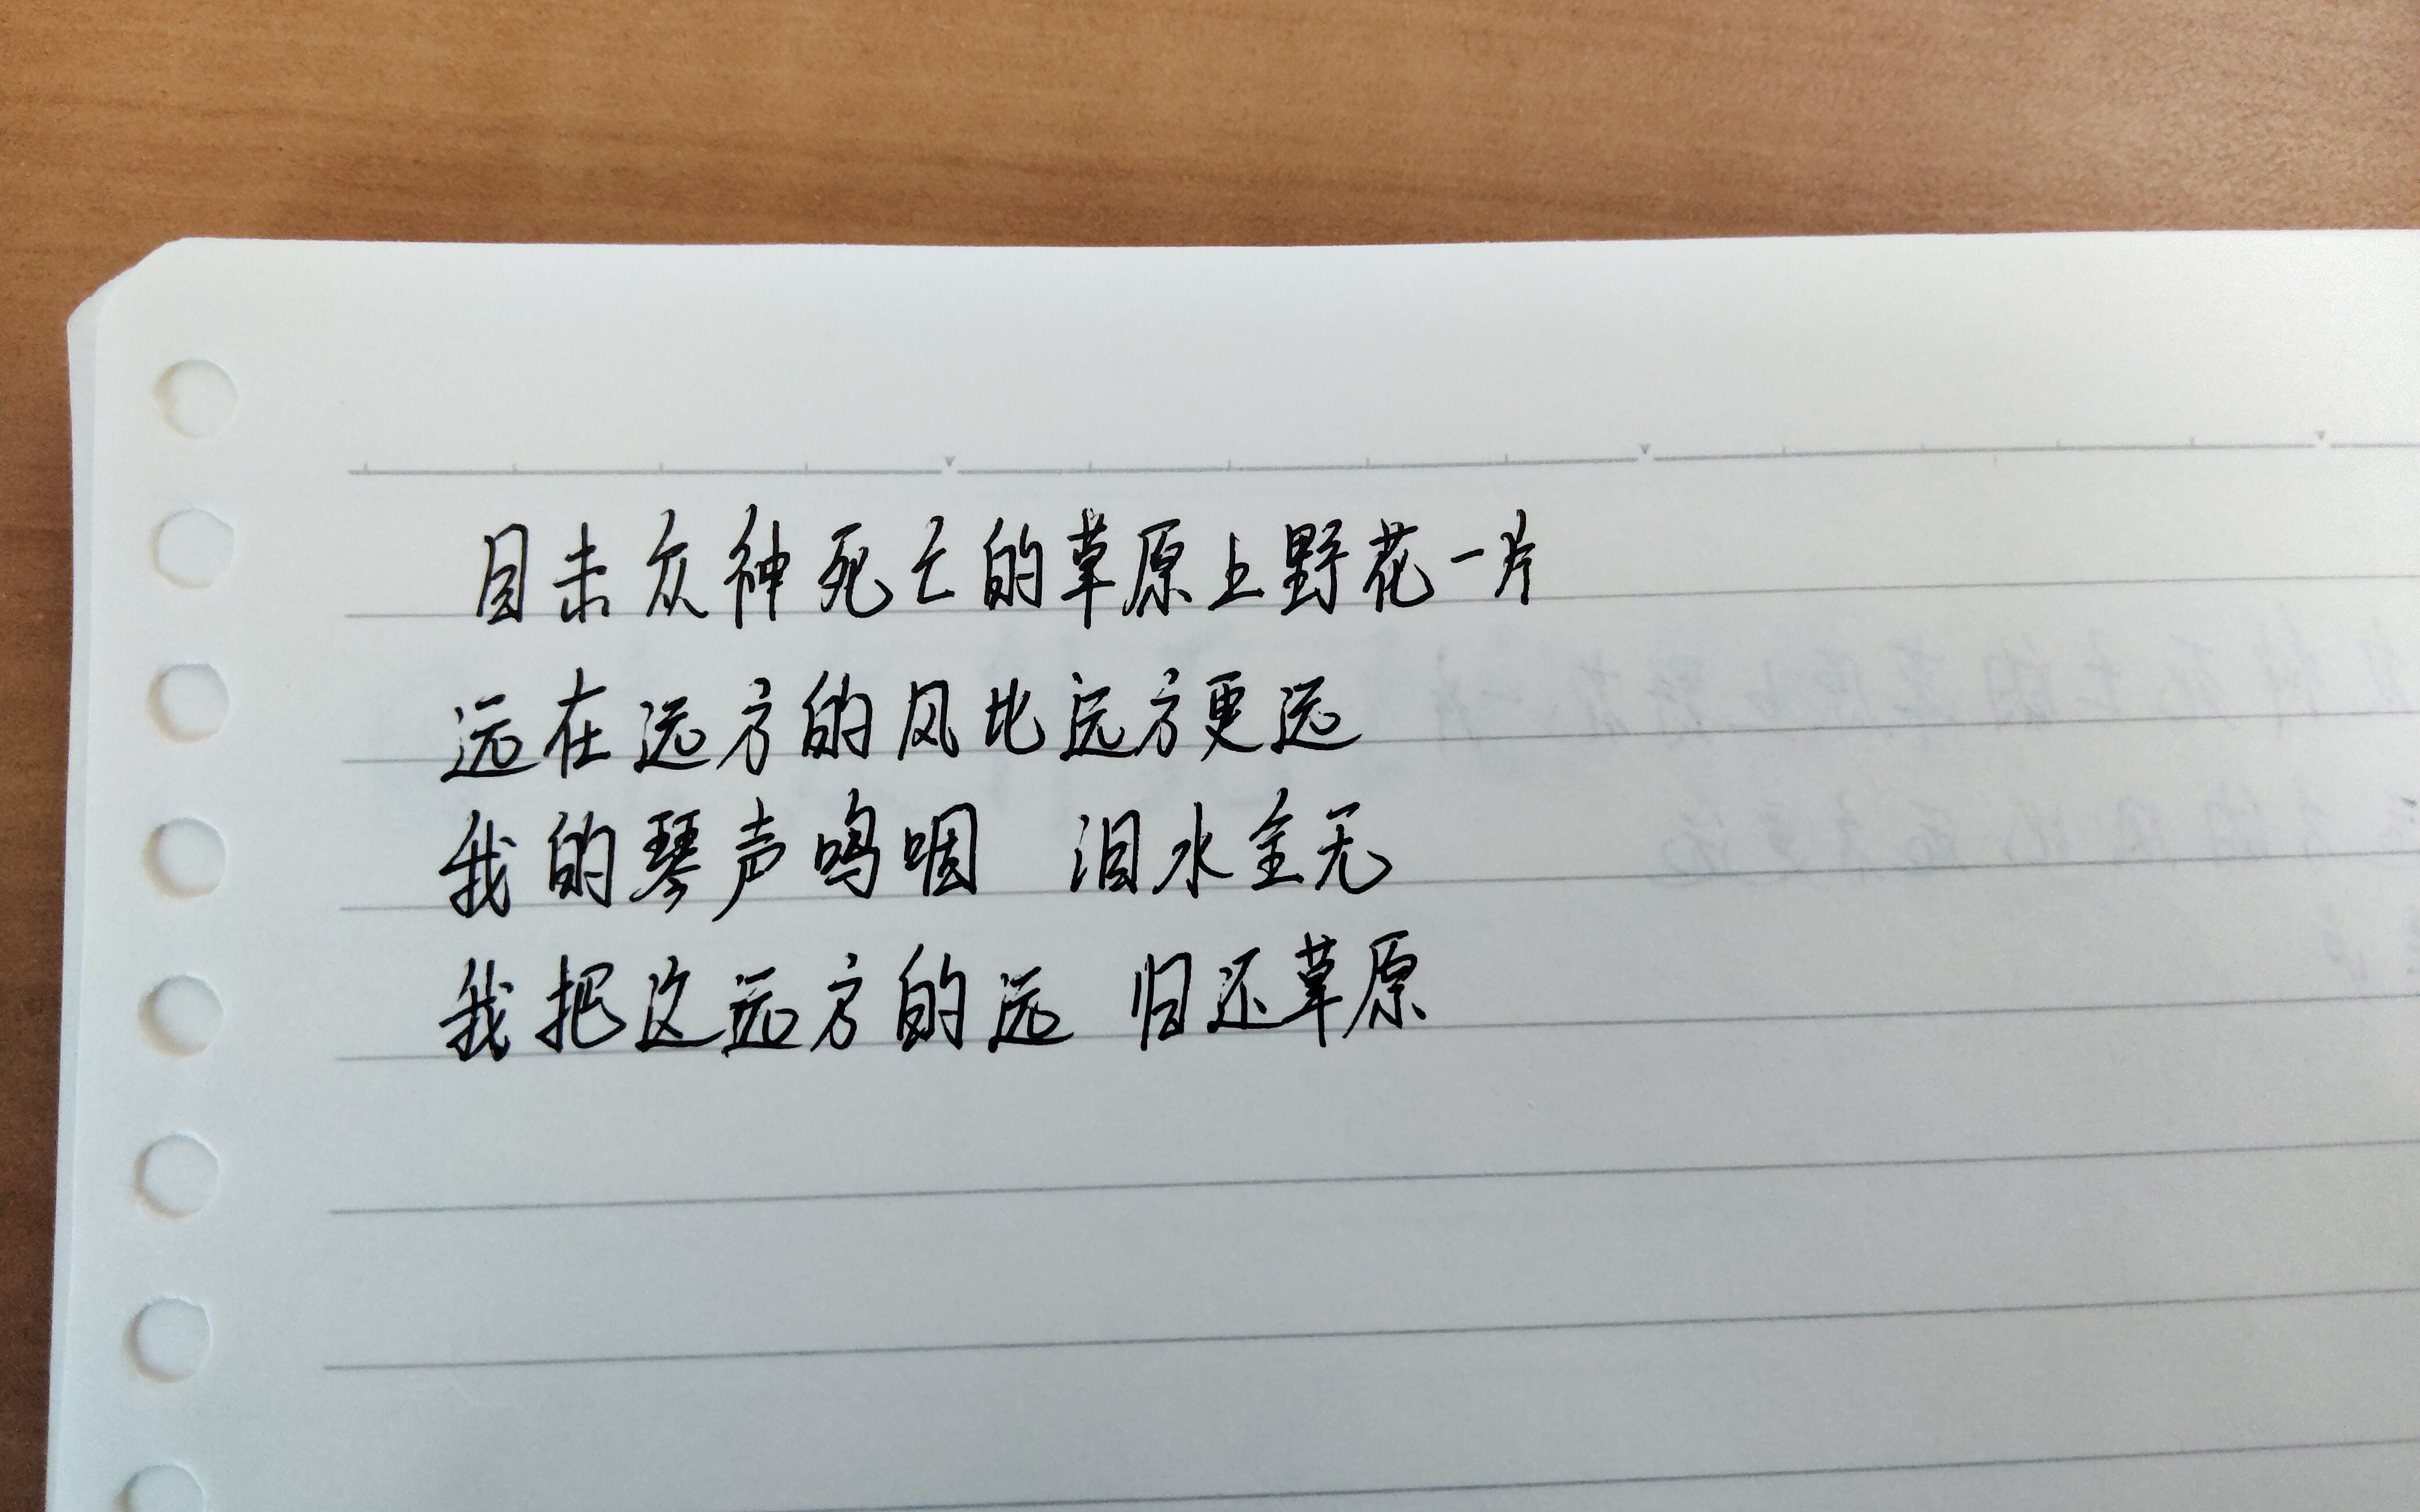 目击众神死亡的草原上野花一片
远在远方的风比远方更远
我的琴声呜咽 泪水全无
我把这远方的远 归还草原